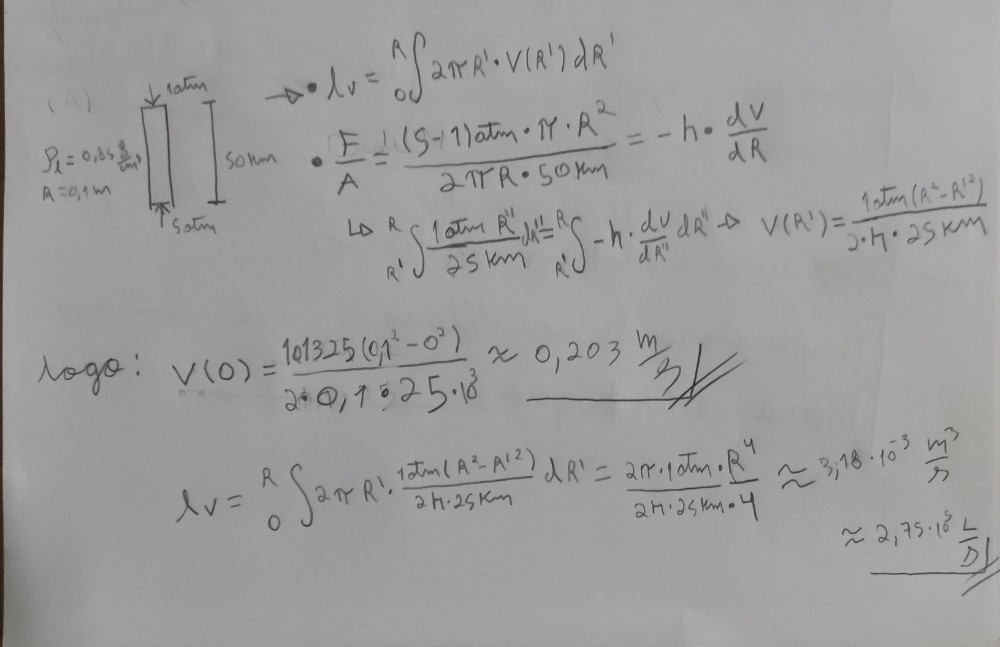 (A)
1atm
ρl = 0,85 g/cm³
R = 0,1 m
50 km
5 atm
→ • lv = ₀ᴿ∫ 2πR'·V(R') dR'
• F/A = (5-1)atm·π·R² / 2πR·50km = -η·dV/dR
↳ R'ᴿ∫ 1atm R''/25km dR'' = R'ᴿ∫ -η·dv/dR'' dR'' → V(R') = 1atm(R²-R'²)/2·η·25km
logo: V(0) = 101325(0,1²-0²)/2·0,1·25·10³ ≈ 0,203 m/s
lv = ₀ᴿ∫ 2πR'·1atm(R²-R'²)/2η·25km dR' = 2π·1atm·R⁴/2η·25km·4 ≈ 3,18·10⁻³ m³/s
≈ 2,75·10⁵ L/D